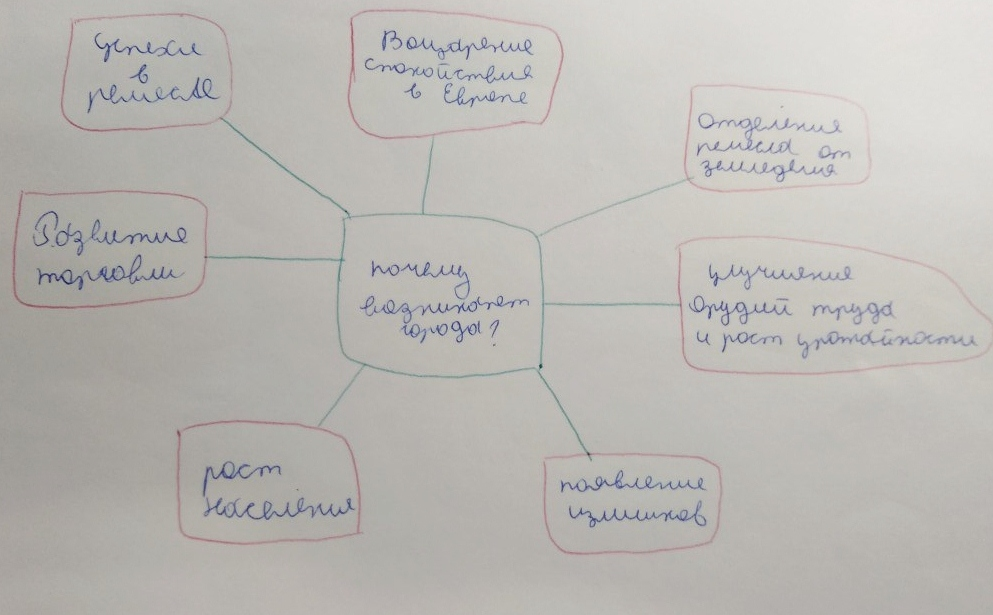 Успехи
в
ремесле
Воцарение
спокойствия
в Европе
Отделения
ремесла от
земледелия
Развитие
торговли
почему
возникают
города?
улучшения
орудий труда
и рост урожайности
рост
населения
появление
излишков